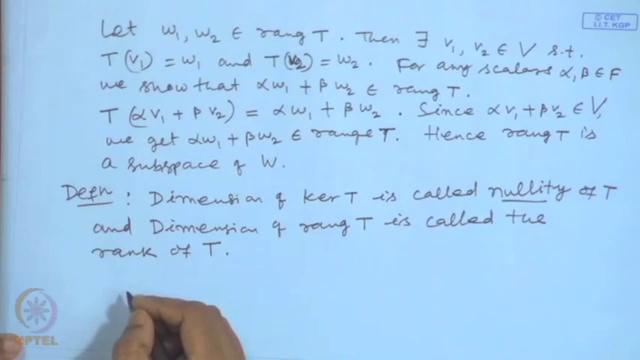 © CET
I.I.T. KGP
Let w₁, w₂ ∈ rang T. Then ∃ v₁, v₂ ∈ V s.t.
T(v₁) = w₁ and T(v₂) = w₂. For any scalars α, β ∈ F
we show that αw₁ + βw₂ ∈ rang T.
T(αv₁ + βv₂) = αw₁ + βw₂. Since αv₁ + βv₂ ∈ V,
we get αw₁ + βw₂ ∈ range T. Hence rang T is
a subspace of W.
Defn : Dimension of ker T is called nullity of T
and Dimension of rang T is called the
rank of T.
NPTEL